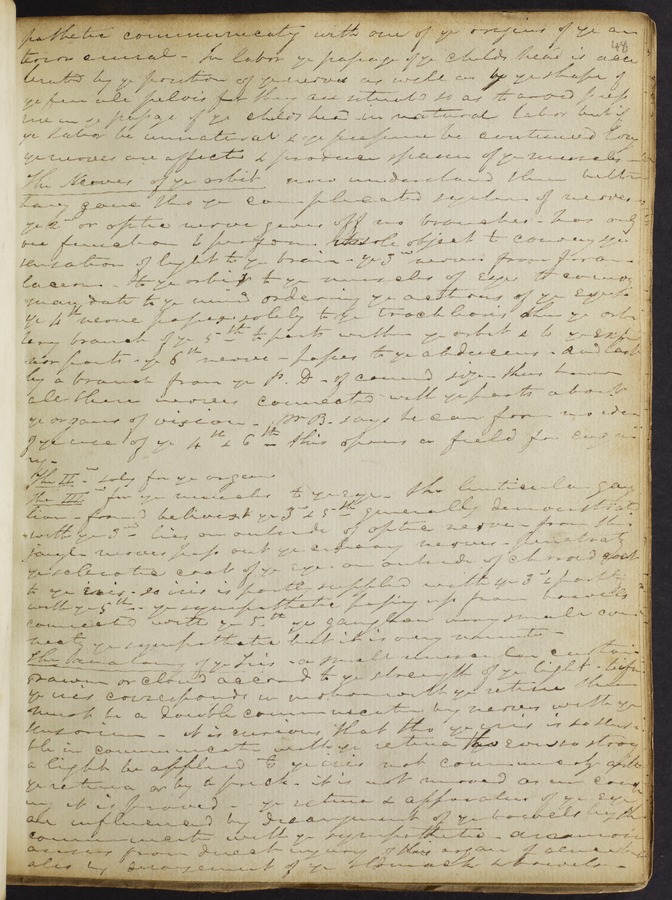 48
pathetic communicates with one of ye origins of ye an
terior crural - In labor ye passage of ye childs head is acce
lerated by ye position of ye nerves as well as by ye shape of
ye female pelvis for they are situated so as to avoid pres
sure in ye passage of ye childs head in natural labor but if
ye labor be unnatural & ye pressure be continued long
ye nerves are affected & produce spasm of ye muscles -
The Nerves of ye orbit now understand them better
having gone thro ye complicated system of nerves -
ye 2nd or optic nerve gives off no branches - has only
one function to perform. Its sole object to convey ye
sensation of light to ye brain - ye 3rd nerve from foram
lacerum - to ye orbit to ye muscles of Eye to convey
mandate to ye mind ordering ye actions of ye Eyes
ye 4th nerve passes solely to ye trochlearis
branch of ye 5th - to parts within ye orbit & to ye
parts - ye 6th nerve - passes to ye abducens - and last
by a branch from ye P. D - of council
all these nerves connected with ye parts about
ye organs of vision - Mr B. says he can form no idea
of ye use of ye 4th & 6th - this opens a field for enqui
ry -
The II - sole for ye organ
The III - for ye muscles to ye eye - The lenticular gang
lion - found between ye 3rd & 5th generally demonstrated
with ye 3rd - lies on outside of optic nerve - from this
nerves pass out ye ciliary nerves - penetrate
ye sclerotic coat of ye Eye - on outside of choroid coat
to ye iris - so iris is partly supplied with ye 3rd & partly
with ye 5th - ye sympathetic passing up from bowels
connected with ye 5th ye ganglion very small con
nects ye sympathetic but it is very minute -
The anatomy of ye Iris - a small muscular curtain
drawn or closed accord to ye strength of ye light - before
ye iris corresponds in motion with ye retina there
must be a double communication by nerves with ye
sensorium - it is curious that tho ye iris is so sensi
ble in communicate with ye retina tho ever so strong
a light be applied to ye iris not communicating
ye retina or by a prick - it is not moved as in couch
ing it is proved - ye retina & apparatus of ye Eye
are influenced by derangement of ye bowels by the
communicate with ye sympathetic -
arises from direct injury of this organ
also by derangement of ye stomach & bowels -